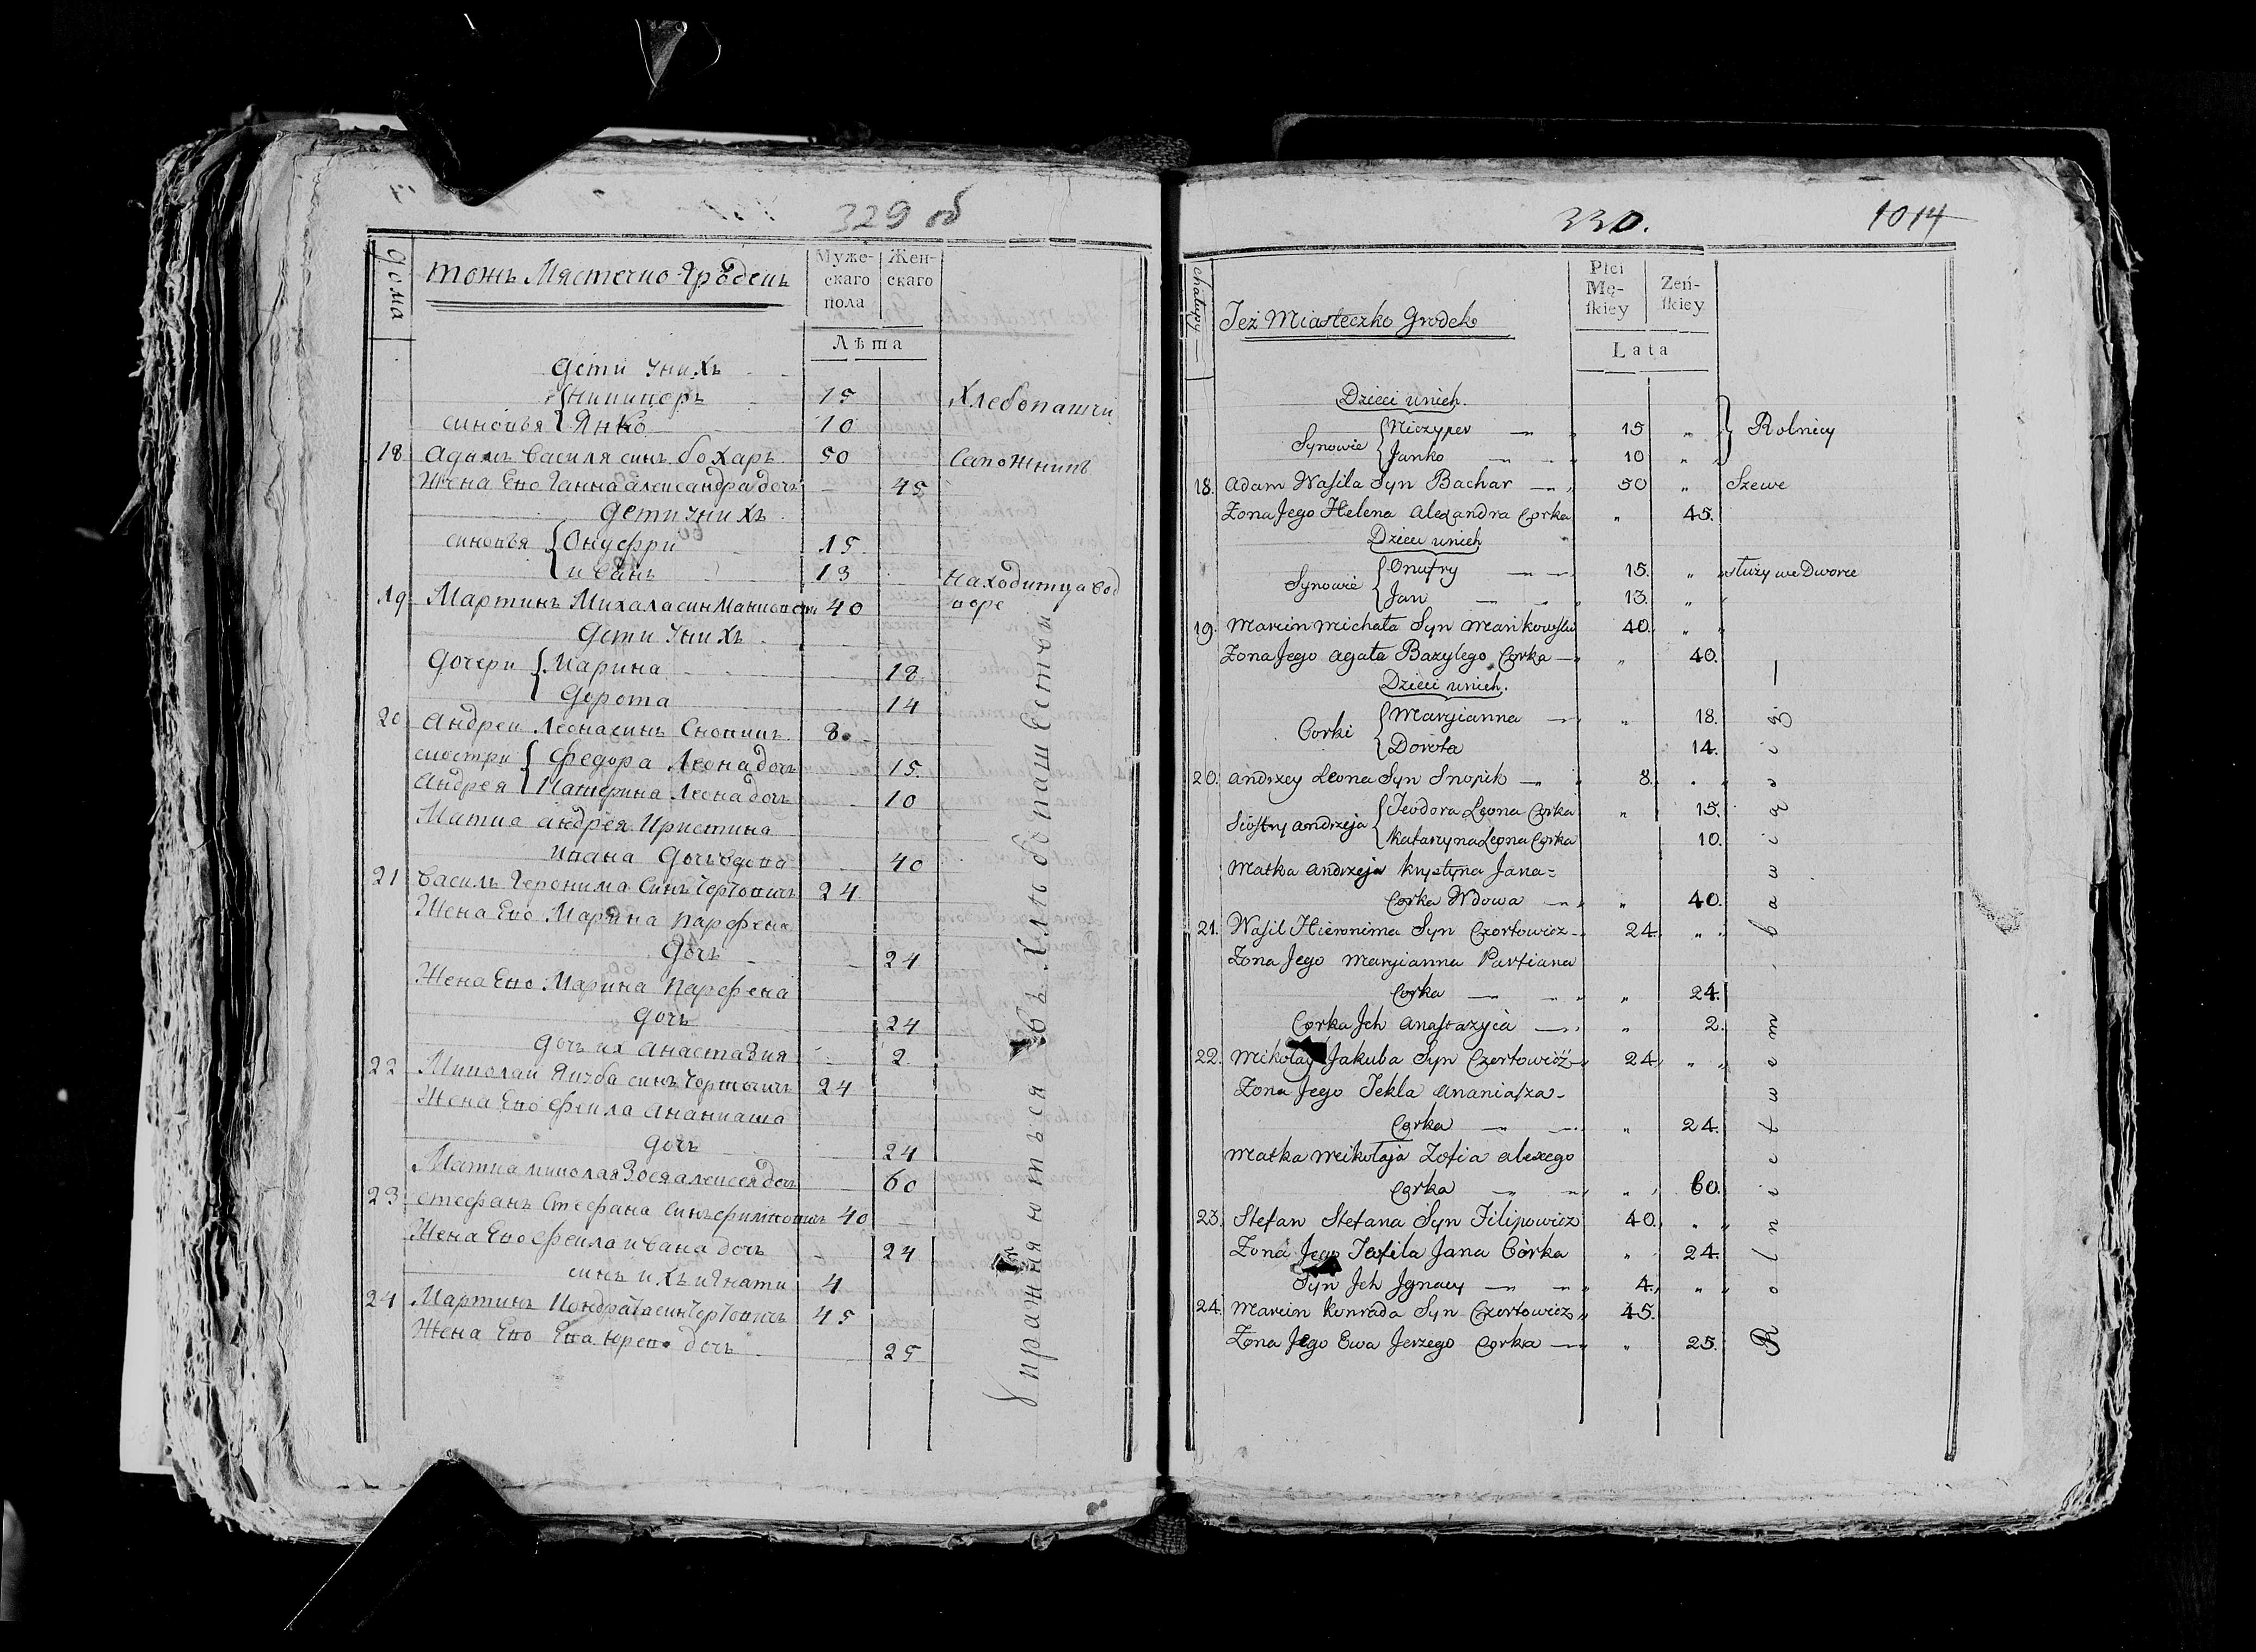 329 об
Дома
тожъ Мястечко Гродекъ
Муже-
скаго
пола
Жен-
скаго
Лѣта
Дети Унихъ
синовья
Ничипоръ 15
Янко 10
Хлебопашци
18 Адамъ Василя синъ бохаръ 50 Сапожникъ
Жена Ево Ганна александра дочъ 45
Дети Унихъ
синовья
Онуфри 15
иванъ 13
Находитца во д
воре
19 Мартинъ Михала син Манковски 40
Дети Унихъ
Дочери
Марина 18
Дорота 14
20 Андреи Леона синъ Снопикъ 8
сиостри
Андрея
Федора Леона дочъ 15
Катерина Леона дочъ 10
Матка андрея Кристина
ивана Дочъ вдова 40
21 Василъ Геронима Синъ Чортовичъ 24
Жена Ево Марина Парфена
Дочъ 24
Жена Ево Марина Парфена
Дочъ 24
Дочъ их анастазия 2
22 Миколаи Якуба синъ Чортовичъ 24
Жена Ево Фекла Ананиаша
Дочъ 24
Матка миколая Зося алексея дочъ 60
23 Стефанъ Стефана Синъ филиповичъ 40
Жена Ево Фекла ивана дочъ 24
синъ ихъ игнати 4
24 Мартинъ Кондрата син Чортовичъ 45
Жена Ево Ева Юрево дочъ 25
Упражняютъся въ Хлѣбопашестви
330.
1014
chałupy
Też Miasteczko Grodek
Płci
Mę-
ſkiey
Żeń-
ſkiey
Lata
Dzieci unich.
Synowie
Niczyper 15
Janko 10
Rolnicy
18. Adam Waſila Syn Bachar 50 Szewc
Zona Jego Helena Alexandra Corka 45.
Dzieci unich
Synowie
Onufry 15. służy we Dworze
Jan 13.
19. Marcin Michała Syn Mańkowski 40.
Zona Jego Agata Bazylego Corka 40.
Dzieci unich.
Corki
Maryianna 18.
Dorota 14.
20. Andrzey Leona Syn Snopik 8.
Siostry Andrzeja
Teodora Leona Corka 15.
Katarzyna Leona Corka 10.
Matka Andrzeja Krystyna Jana=
Corka Wdowa 40.
21. Waſil Hieronima Syn Czortowicz 24.
Zona Jego Maryianna Parfiana
Corka 24.
Corka Jch Anaſtazyia 2.
22. Mikołay Jakuba Syn Czortowicz 24
Zona Jego Tekla Ananiaſza-
Corka 24.
Matka Mikołaja Zofia Alexego
Corka 60.
23. Stefan Stefana Syn Filipowicz 40.
Zona Jego Jana Córka 24.
Syn Jch Jgnacy 4.
24. Marcin Konrada Syn Czortowicz 45.
Zona Jego Ewa Jerzego Corka 25.
Rolnictwem bawią się